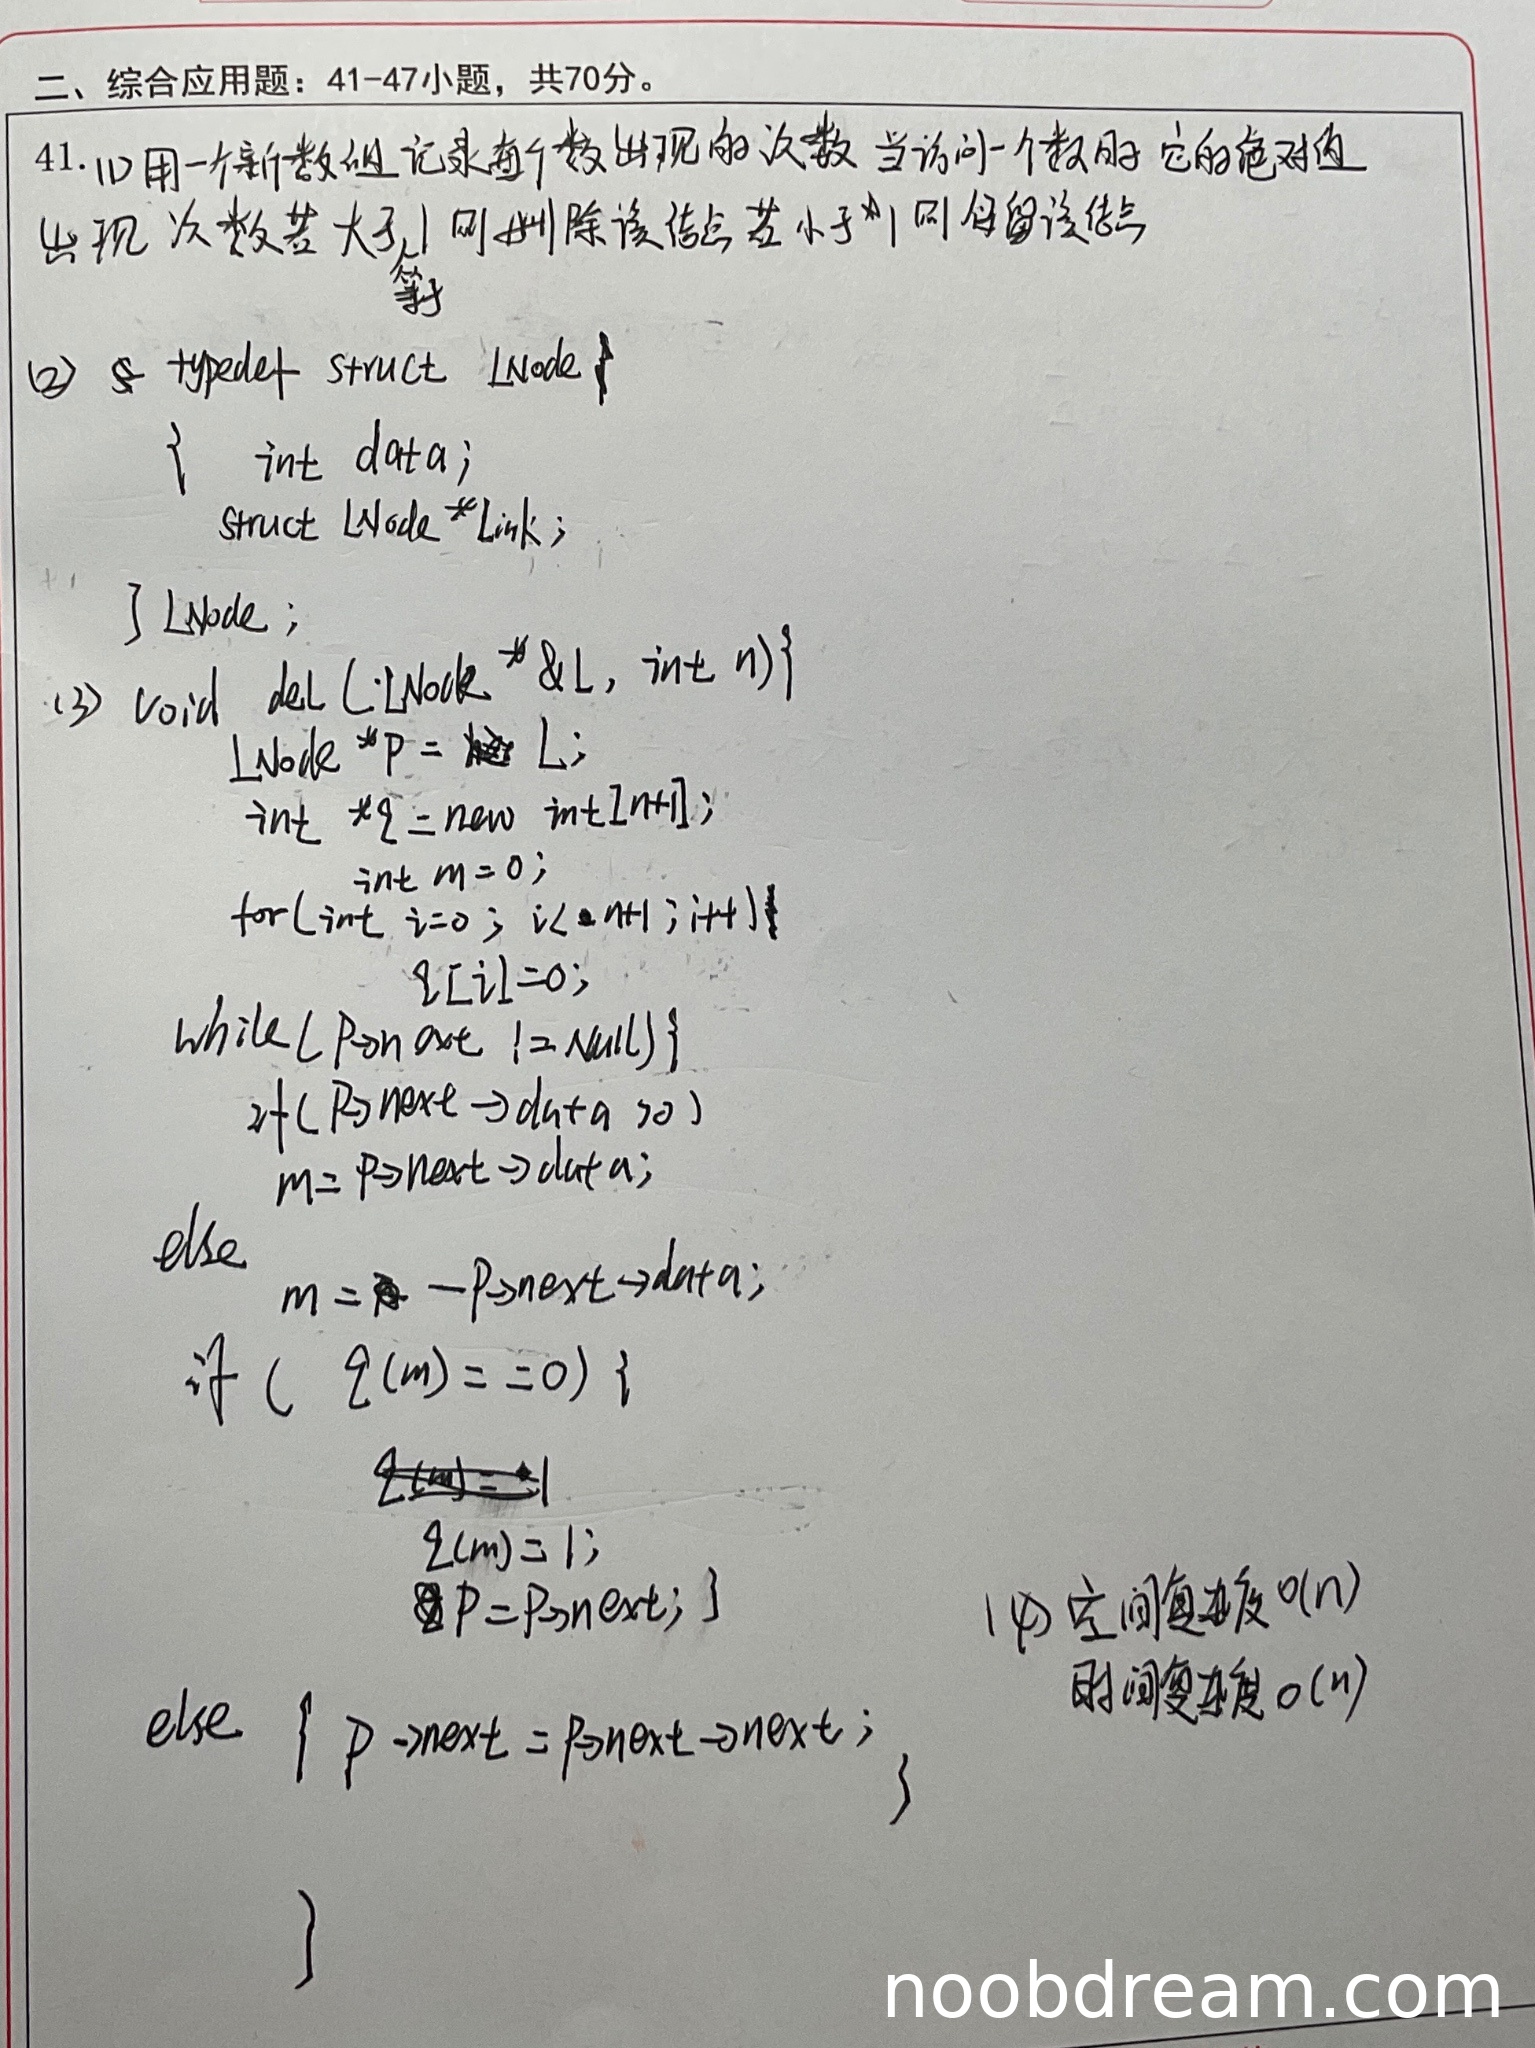 二、综合应用题：41-47小题，共70分。
41. (1) 用一个新数组记录每个数出现的次数 当访问一个数时 它的绝对值
出现次数若大于等于1则删除该结点若小于1则保留该结点
(2) typedef struct LNode
{ int data;
struct LNode *Link;
} LNode;
(3) void del (LNode *&L, int n){
LNode *p = L;
int *q = new int[n+1];
int m=0;
for(int i=0; i<n+1; i++)
q[i]=0;
while(p->next != Null){
if(p->next->data >0)
m= p->next->data;
else
m= -p->next->data;
if( q(m)==0){
q(m)=1;
p=p->next; }
else { p->next = p->next->next;
}
}
(4) 空间复杂度O(n)
时间复杂度O(n)
noobdream.com